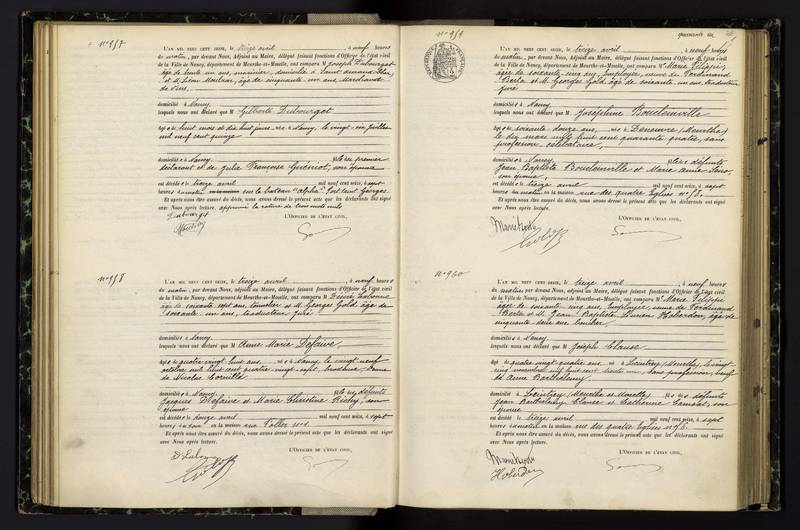 n° 957
L'AN MIL NEUF CENT SEIZE, le treize avril, à neuf heures
du matin, par devant Nous, Adjoint au Maire, délégué faisant fonctions d'Officier de l'état civil
de la Ville de Nancy, département de Meurthe-et-Moselle, ont comparu M Joseph Dubourgot
âgé de trente un ans, marinier, domicilié à Saint amand
et M Léon cinquante un ans, Marchand
de vins,
domiciliés à Nancy
lesquels nous ont déclaré que Gilberte Dubourgot
âgée de huit mois et dix huit jours née à Nancy, le vingt-six juillet
mil neuf cent quinze
domiciliée à Nancy fille du premier
déclarant et de Julie Françoise Guéniot, son épouse
est décédée le treize avril mil neuf cent seize, à sept
heures sur le bateau "alpha" Port Saint Georges.
Et après nous être assuré du décès, nous avons dressé le présent acte que les déclarants ont signé
avec Nous après lecture. approuvé la rature de trois mots nuls
Dubourgot
L'OFFICIER DE L'ÉTAT CIVIL,
n° 958
L'AN MIL NEUF CENT SEIZE, le treize avril, à neuf heures
du matin, par devant Nous, adjoint au Maire, délégué faisant fonctions d'Officier de l'état civil
de la Ville de Nancy, département de Meurthe-et-Moselle, ont comparu M
âgé de soixante sept ans, et M Georges Gold âgé de
soixante un ans, traducteur juré
domiciliés à Nancy
lesquels nous ont déclaré que M Anne Marie Defaive
âgée de quatre vingt huit ans, née à Nancy le vingt neuf
octobre mil huit cent vingt-sept, veuve
de Nicolas
domiciliée à Nancy fille des défunts
Jacques Defaive et Marie Christine Richy, son
épouse
est décédée le douze avril mil neuf cent seize, à sept
heures du soir en la maison rue Foller n° 1.
Et après nous être assuré du décès, nous avons dressé le présent acte que les déclarants ont signé
avec Nous après lecture.
L'OFFICIER DE L'ÉTAT CIVIL,
quarante six
n° 959
L'AN MIL NEUF CENT SEIZE, le treize avril, à neuf heures
du matin, par devant Nous, Adjoint au Maire, délégué faisant fonctions d'Officier de l'état civil
de la Ville de Nancy, département de Meurthe-et-Moselle, ont comparu Me Marie Filippi
âgée de soixante cinq ans, Employée, veuve de Ferdinand
Berta et M Georges Gold âgé de soixante un ans, traducteur
juré
domiciliés à Nancy
lesquels nous ont déclaré que Joséphine Bouleinville
âgée de soixante douze ans, née à Deneuvre (Meurthe)
le dix mars mille huit cent quarante quatre, sans
profession, célibataire,
domiciliée à Nancy fille des défunts
Jean Baptiste Bouleinville et Marie Anne
son épouse,
est décédée le treize avril mil neuf cent seize, à sept
heures du matin en la maison, rue des quatre Eglises n° 6.
Et après nous être assuré du décès, nous avons dressé le présent acte que les déclarants ont signé
avec Nous après lecture.
L'OFFICIER DE L'ÉTAT CIVIL,
n° 960
L'AN MIL NEUF CENT SEIZE, le treize avril, à neuf heures
du matin, par devant Nous, adjoint au Maire, délégué faisant fonctions d'Officier de l'état civil
de la Ville de Nancy, département de Meurthe-et-Moselle, ont comparu Me Maria Filippi
âgée de soixante cinq ans, Employée, veuve de Ferdinand
Berta et M Jean Baptiste Hoberdon, âgé de
cinquante deux ans
domiciliés à Nancy
lesquels nous ont déclaré que M Joseph Clause
âgé de quatre vingt quatre ans, né à Leintrey (Meurthe) le vingt
cinq novembre mil huit cent trente un, sans profession, veuf
d'Anne Barthélemy,
domicilié à Leintrey (Meurthe et Moselle) fils des défunts
Jean Barthélemy Clause et Catherine son
épouse
est décédé le treize avril mil neuf cent seize, à sept
heures du matin en la maison rue des quatre Eglises n° 6.
Et après nous être assuré du décès, nous avons dressé le présent acte que les déclarants ont signé
avec Nous après lecture.
L'OFFICIER DE L'ÉTAT CIVIL,
Hoberdon